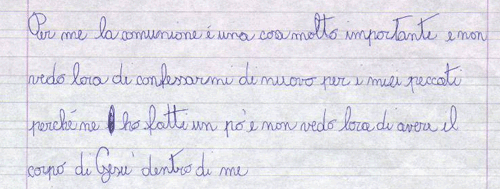 Per me la comunione è una cosa molto importante e non
vedo lora di confessarmi di nuovo per i miei peccati
perché ne ho fatti un pò e non vedo lora di avere il
corpo di Gesù dentro di me